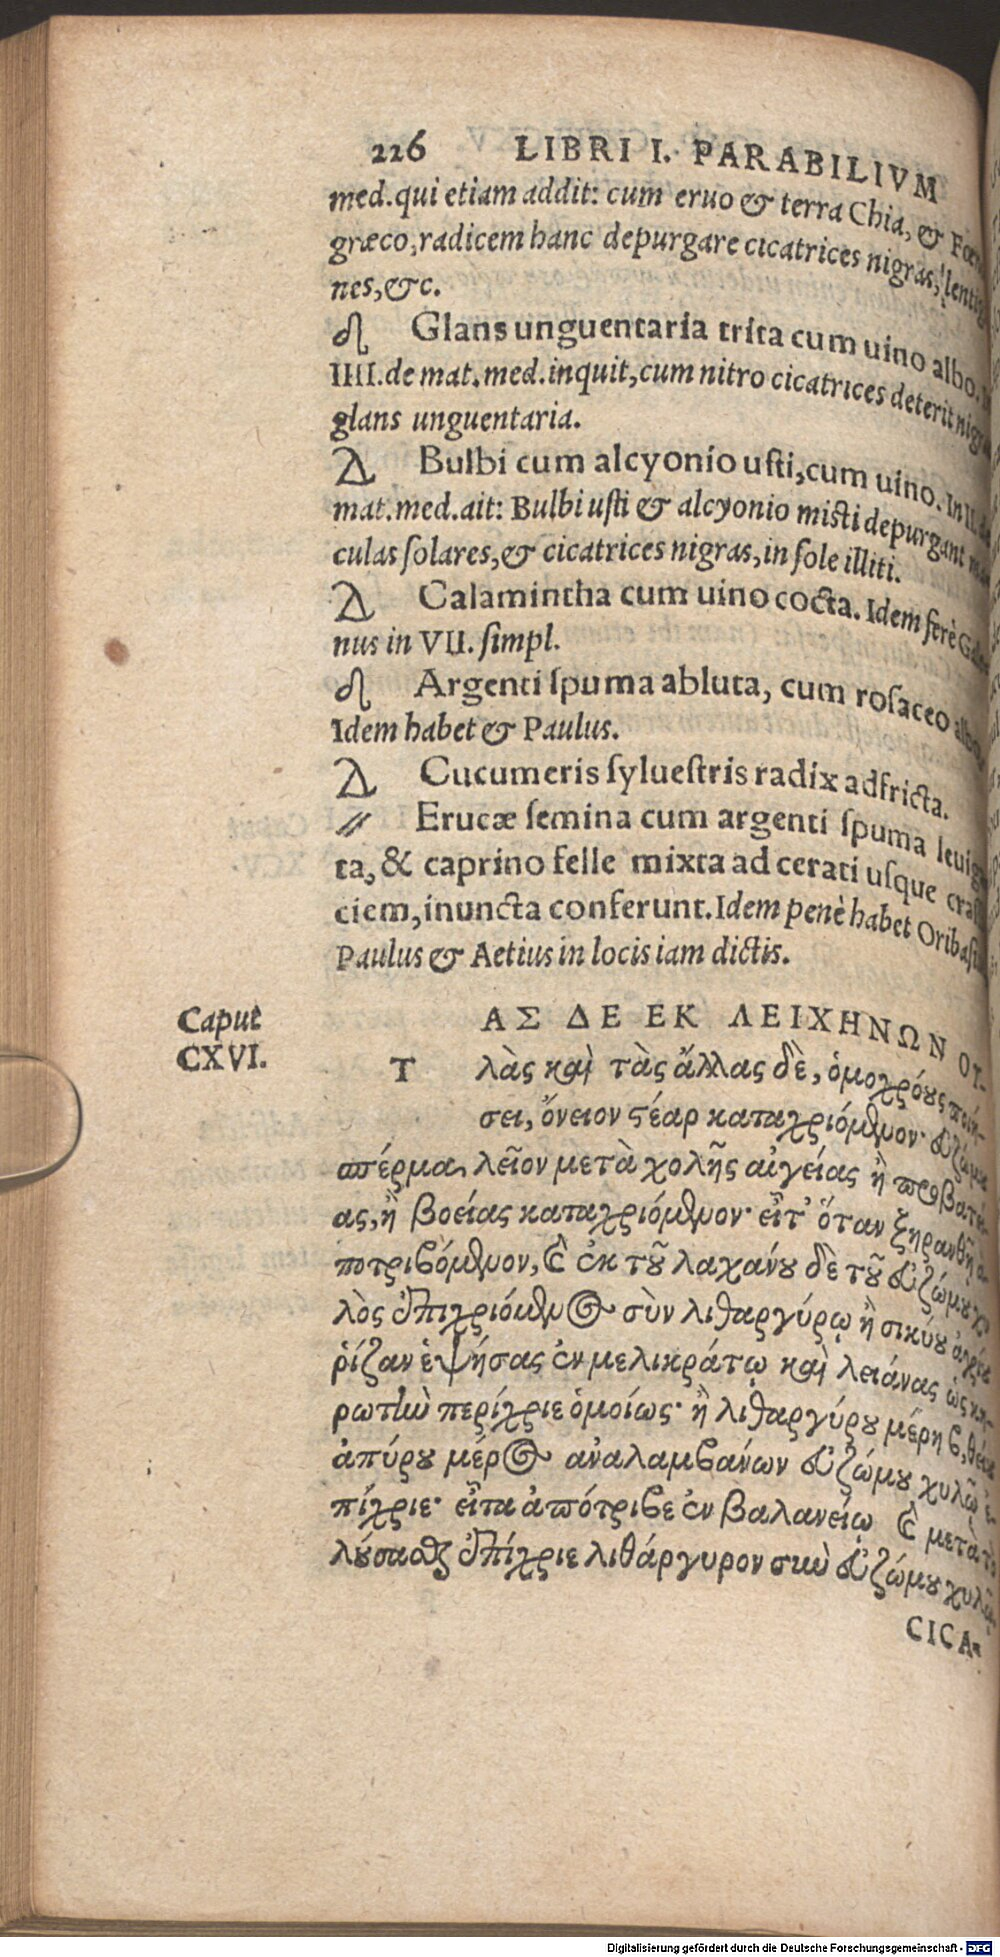 226 LIBRI I. PARABILIVM
med. qui etiam addit: cum eruo & terra Chia, & Fœn
græco, radicem hanc depurgare cicatrices nigras, lentig
nes, &c.
Glans unguentaria trita cum uino albo.
IIII. de mat. med. inquit, cum nitro cicatrices deterit nigr
glans unguentaria.
Bulbi cum alcyonio usti, cum uino. In II. de
mat. med. ait: Bulbi usti & alcyonio misti depurgant
culas solares, & cicatrices nigras, in sole illiti.
Calamintha cum uino cocta. Idem ferè Gale
nus in VII. simpl.
Argenti spuma abluta, cum rosaceo albo
Idem habet & Paulus.
Cucumeris syluestris radix adfricta.
// Erucæ semina cum argenti spuma leuig
ta, & caprino felle mixta ad cerati usque crass
ciem, inuncta conferunt. Idem penè habet Oribasi
Paulus & Aetius in locis iam dictis.
Caput
CXVI.
ΤΑΣ ΔΕ ΕΚ ΛΕΙΧΗΝΩΝ ΟΥ-
λὰς καὶ τὰς ἄλλας δὲ, ὁμοχρόους ποιή-
σει, ὄνειον στέαρ καταχριόμενον· εὐζώμου
σπέρμα λεῖον μετὰ χολῆς αἰγείας ἢ προβατεί-
ας, ἢ βοείας καταχριόμενον· εἶτ' ὅταν ξηρανθῇ ἀ-
ποτριβόμενον, καὶ ἐκ τοῦ λαχάνου δὲ τοῦ εὐζώμου χυ
λὸς ἐπιχριόμενος σὺν λιθαργύρῳ ἢ σικύου ἀγρίου
ῥίζαν ἑψήσας ἐν μελικράτῳ καὶ λειάνας ὡς κη-
ρωτὴν περίχριε ὁμοίως· ἢ λιθαργύρου μέρη ϛ, θείου
ἀπύρου μέρος ἀναλαμβάνων εὐζώμου χυλῷ ἐ
πίχριε· εἶτα ἀπότριβε ἐν βαλανείῳ καὶ μετὰ τὸ
λούσασθαι ἐπίχριε λιθάργυρον σὺν εὐζώμου χυλῷ.
CICA-